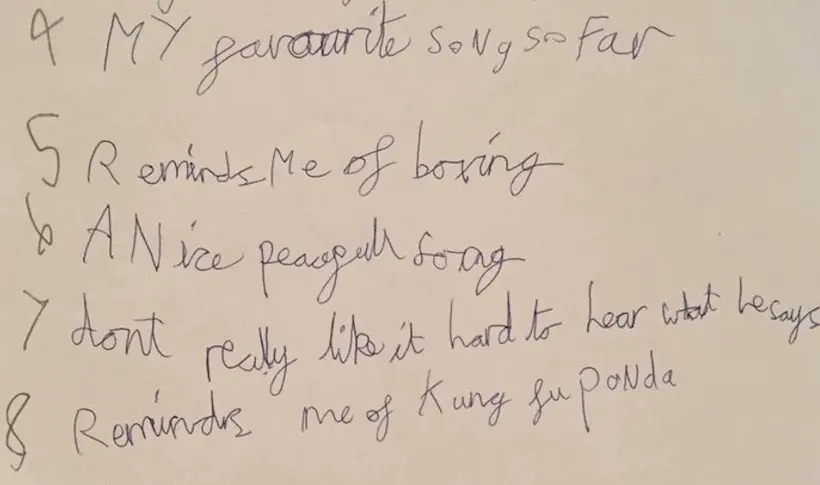 4 MY favourite SoNg so Far
5 Reminds Me of boxing
6 A Nice peacefull song
7 dont really like it hard to hear what he says
8 Reminds me of Kung fu PaNda